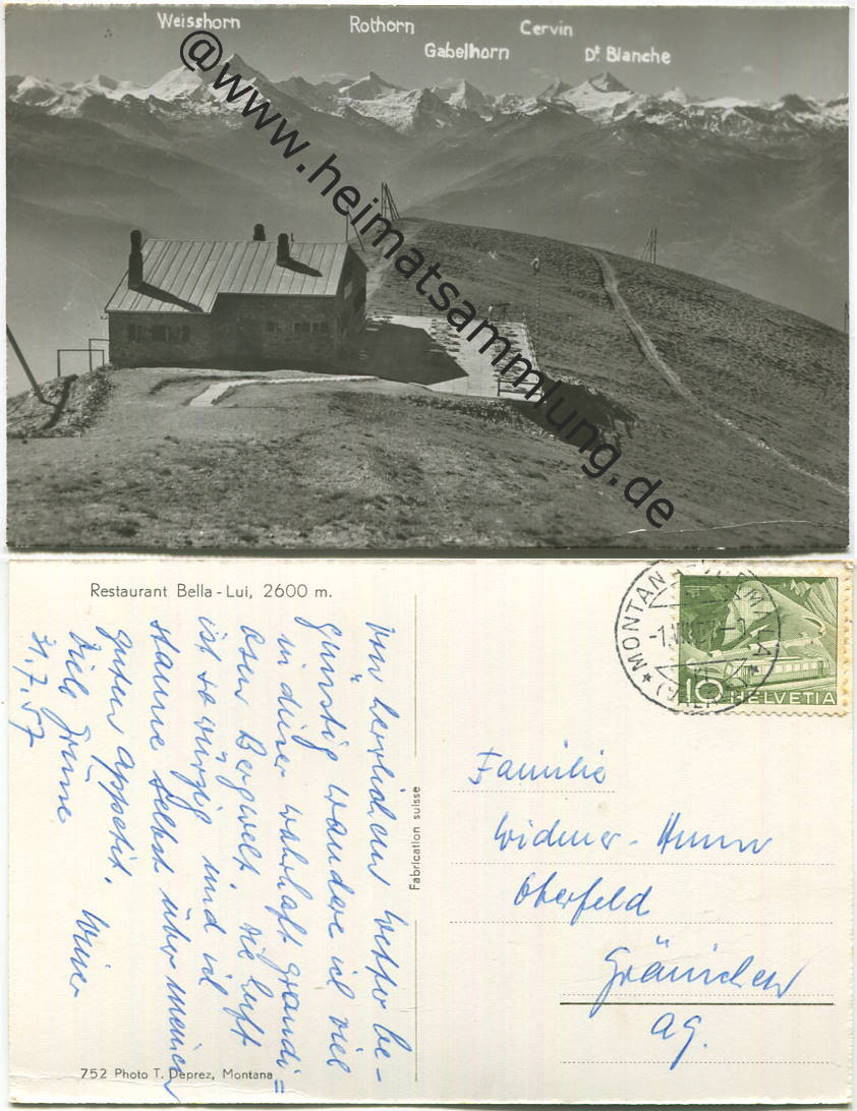 Weisshorn
Rothorn
Gabelhorn
Cervin
Dt Blanche
@www.heimatsammlung.de
Restaurant Bella-Lui, 2600 m.
Von herrlichem Wetter be-
günstig wandere ich viel
in dieser wahrhaft grandi=
osen Bergwelt. Die Luft
ist so würzig und ich
staune selbst über meinen
guten Appetit.
Viele Grüsse
31.7.57
Fabrication suisse
752 Photo T. Deprez, Montana
MONTANA-VERMALA
10 HELVETIA
Familie
Widmer-
Oberfeld
Gränichen
AG.